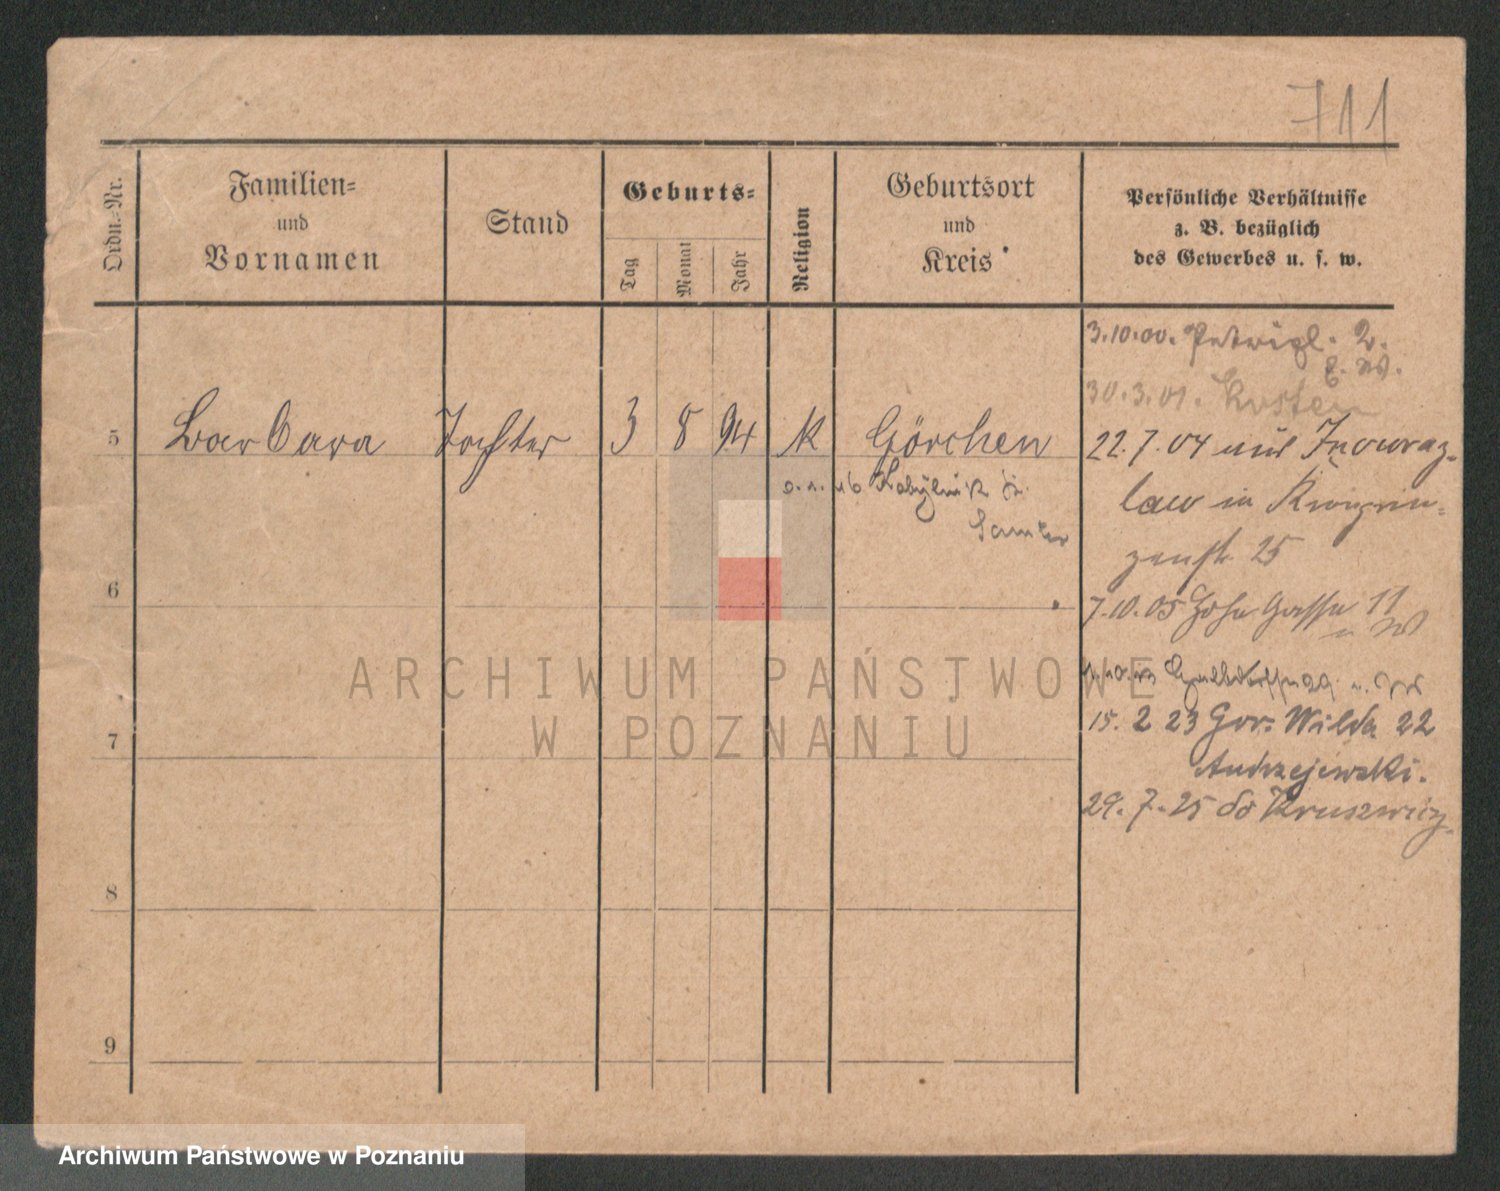 711
Ordn.-Nr.
Familien-
und
Vornamen
Stand
Geburts-
Tag
Monat
Jahr
Religion
Geburtsort
und
Kreis
Persönliche Verhältnisse
z. B. bezüglich
des Gewerbes u. s. w.
5 Barbara Tochter 3 8 94 K Görchen
Kobylnik
Samter
6
7
8
9
3.10.00.
30.3.01. Kosten
22.7.04 aus Inowraz-
law in Kronprin-
zenstr. 25
7.10.05 Hohe Gasse 11
15. 2 23 Gór. Wilda 22
Andrzejewski.
29. 7. 25 do Kruszwicy
ARCHIWUM PAŃSTWOWE
W POZNANIU
Archiwum Państwowe w Poznaniu